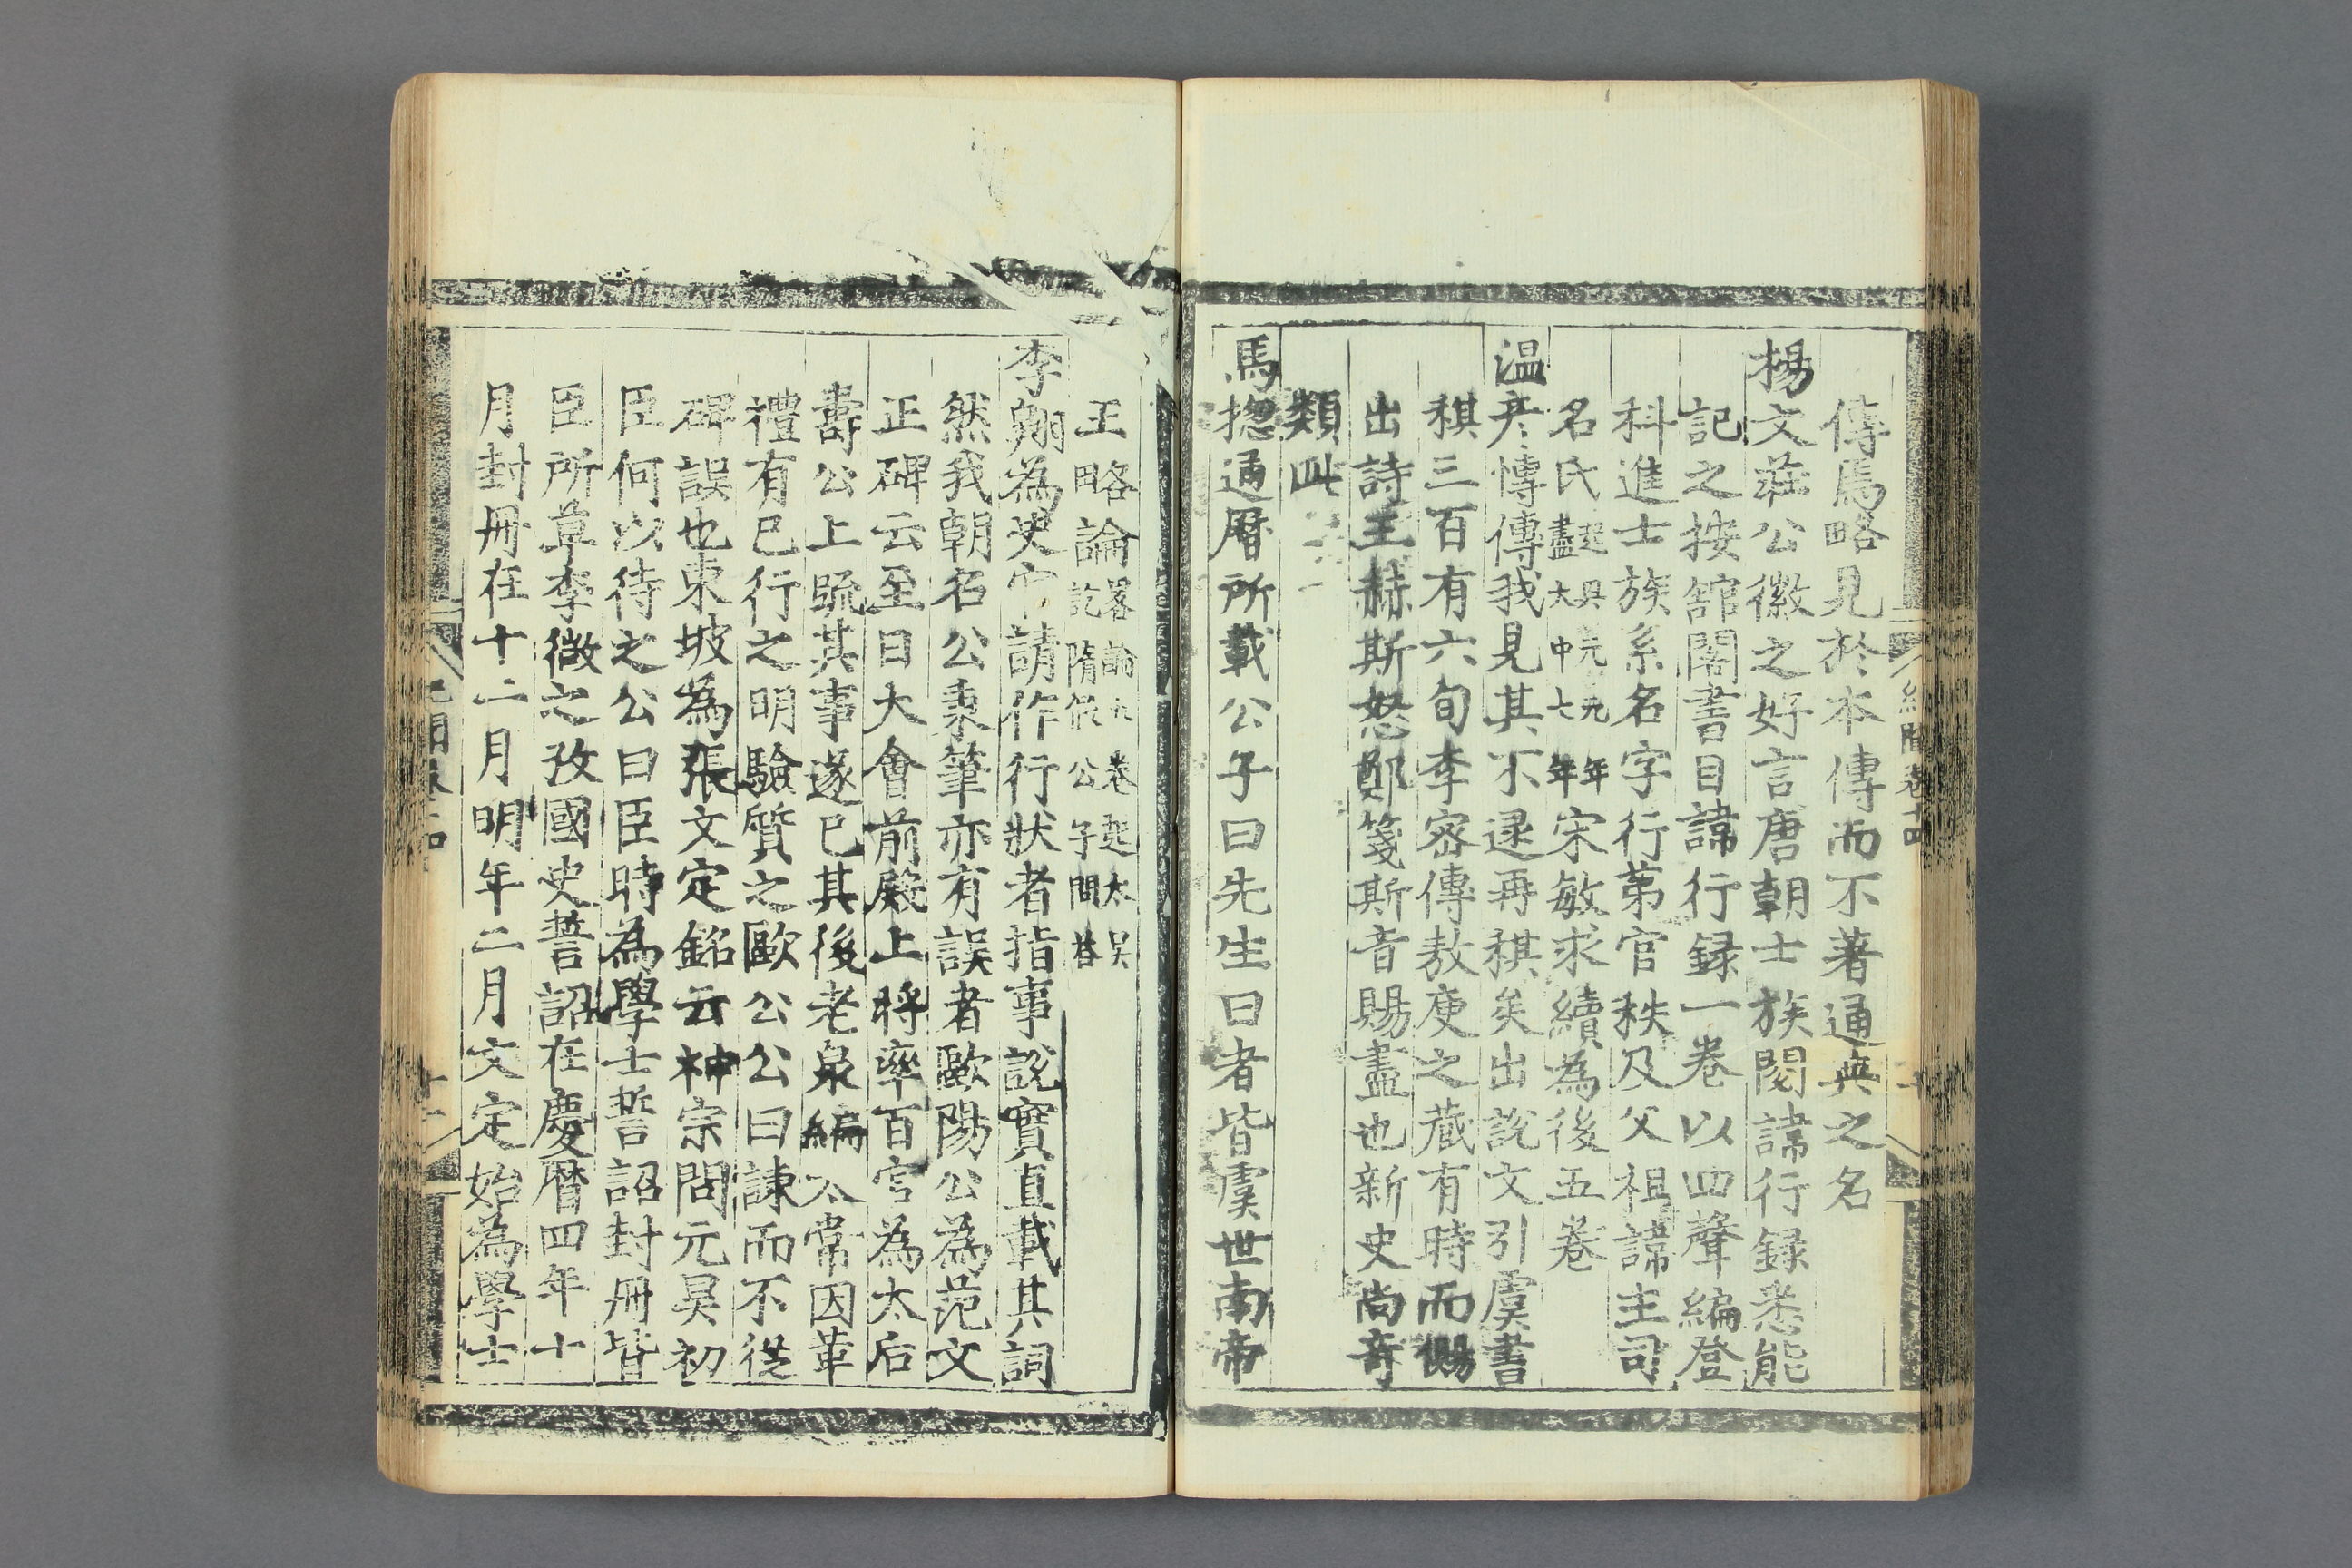 傳焉略見於本傳而不著通典之名
楊文莊公徽之好言唐朝士族閥諱行録悉能
記之按舘閣書目諱行録一卷以四聲編登
科進士族系名字行第官秩及父祖諱主司
名氏起興元元年盡大中七年宋敏求續為後五卷
温彥愽傳我見其不逮再稘矣出說文引虞書
稘三百有六旬李宻傳敖庾之蔵有時而㒆
出詩王赫斯怒鄭箋斯音賜盡也新史尚竒
類此
馬揔通曆所載公子曰先生曰者皆虞世南帝
王略論畧論五卷起太昊訖隋假公子問荅
李翱為史官請作行狀者指事說實直載其詞
然我朝名公秉筆亦有誤者歐陽公為范文
正碑云至日大會前殿上將率百官為太后
壽公上䟽其事遂已其後老泉編太常因革
禮有已行之明驗質之歐公公曰諌而不從
碑誤也東坡為張文定銘云神宗問元昊初
臣何以待之公曰臣時為學士誓詔封冊皆
臣所草李微之攷國史誓詔在慶曆四年十
月封冊在十二月明年二月文定始為學士
紀聞卷十四